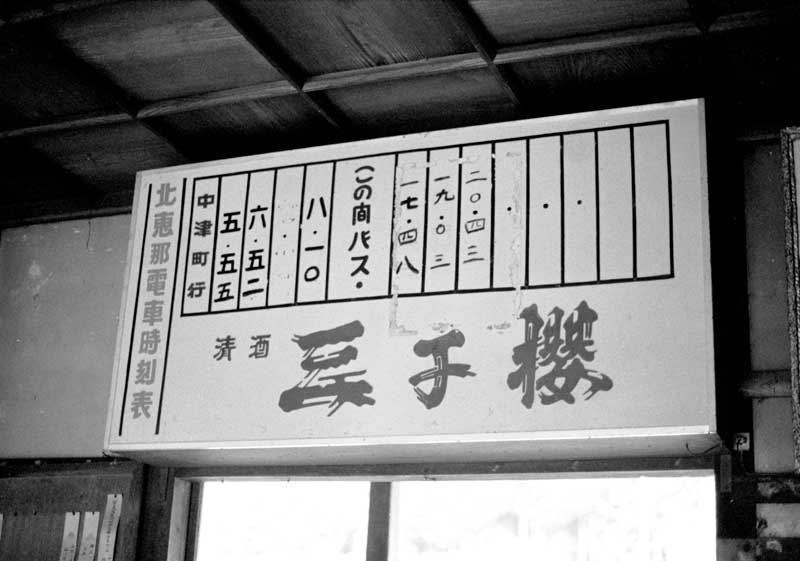 北恵那電車時刻表
中津町行
五・五五
六・五二
八・一〇
(この間バス・
一七・四八
一九・〇三
二〇・四三
清酒 三千櫻